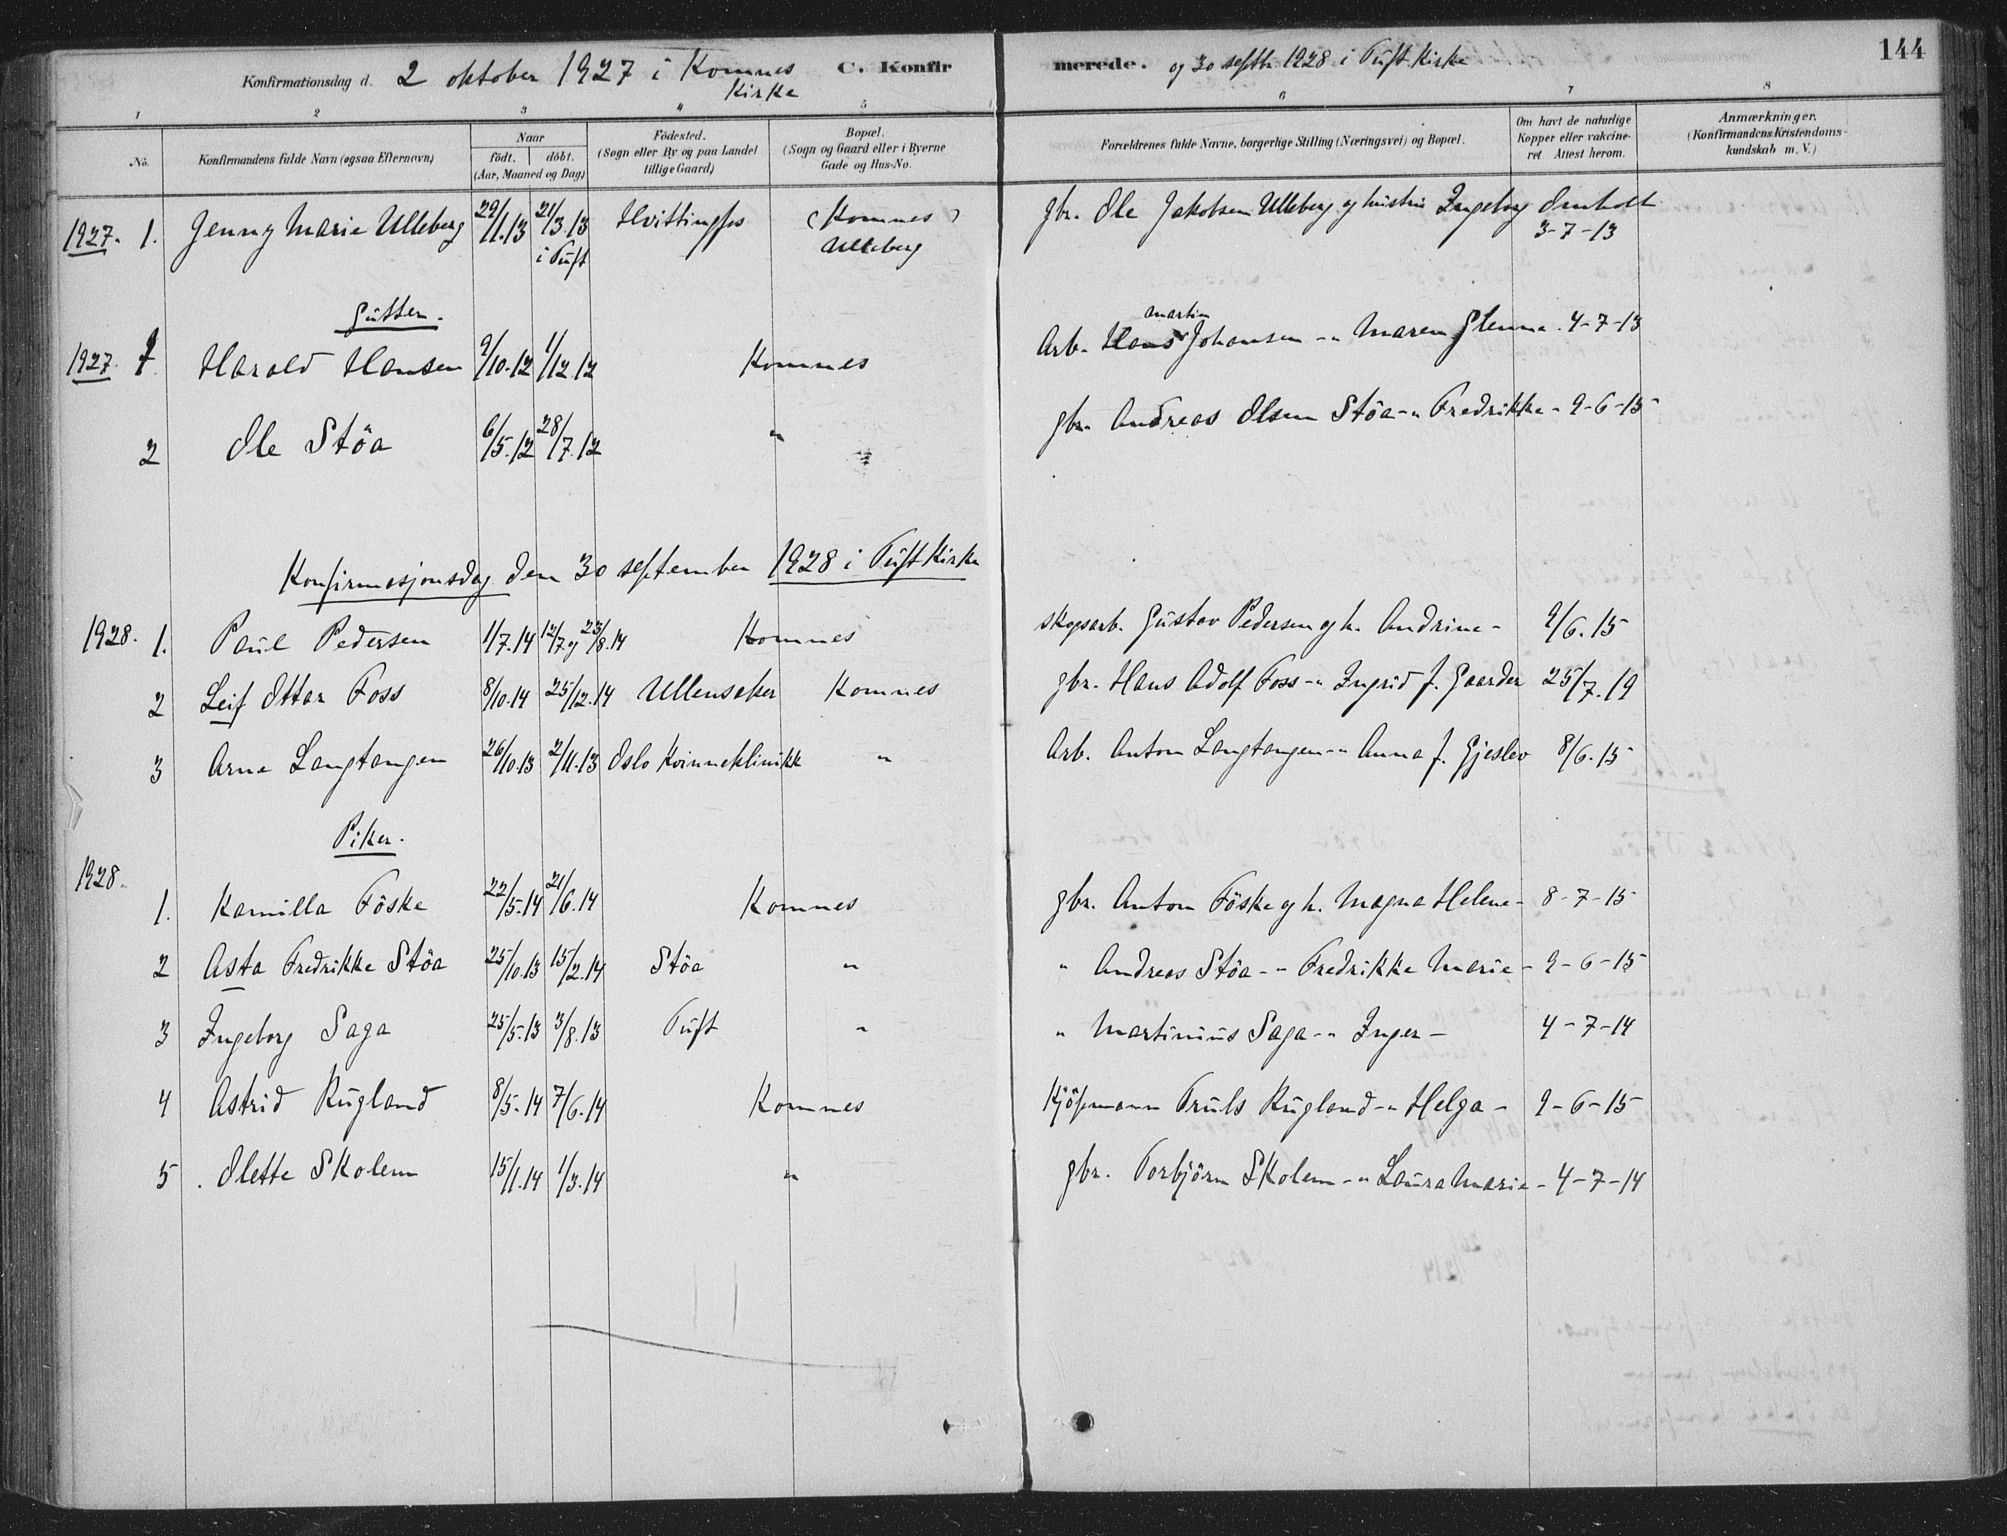 144
Konfirmationsdag d. 2 oktober 1927 i Komnes Kirke C. Konfirmerede. og 30 septbr 1928 i Tuft Kirke
1 2 3 " 5 6 7 8
No. Konfirmandens fulde Navn (ogsaa Efternavn) Naar födt. döbt. (Aar, Maaned og Dag) Födested. (Sogn eller By og paa Landet tillige Gaard) Bopæl. (Sogn og Gaard eller i Byerne Gade og Hus-No. Forældrenes fulde Navne, borgerlige Stilling (Næringsvei) og Bopæl. Om havt de naturlige Kopper eller vakcineret Attest herom. Anmærkninger. (Konfirmandens Kristendomskundskab m. V.)
1927. 1. Jenny Marie Ulleberg 29/1.13 21/3.13 i Tuft Hvittingfos (Komnes) Ulleberg gbr. Ole Jakobsen Ulleberg og hustru Ingeborg Omholt 3-7-13
Gutter.
1927. 1 Harald Hansen 9/10.12 1/12.12 Komnes Arb. Hans Martin Johansen -"- Maren Glenna. 4-7-13
2 Ole Stöa 6/5.12 28/7.12 " gbr. Andreas Olsen Stöa -"- Fredrikke - 9-6-15
Konfirmasjonsdag den 30 september 1928 i Tuft Kirke
1928. 1. Paul Pedersen 1/7.14 12/7 og 23/8.14 Komnes skogsarb. Gustav Pedersen og h. Andrine - 9/6.15
2 Leif Ottar Foss 8/10.14 25/12.14 Ullensaker Komnes gbr. Hans Adolf Foss -"- Ingrid f. Gaarder 25/7.19
3 Arne Langtangen 26/10.13 2/11.13 Oslo Kvinneklinikk " Arb. Anton Langtangen -"- Anna f. Gjeslev 8/6.15
Piker.
1928.
1. Kamilla Föske 22/5.14 21/6.14 Komnes gbr. Anton Föske og h. Magna Helene - 8-7-15
2 Asta Fredrikke Stöa 25/10.13 15/2.14 Stöa " " Andreas Stöa -"- Fredrikke Marie - 9-6-15
3 Ingeborg Saga 25/5.13 3/8.13 Tuft " " Martinius Saga -"- Inger - 4-7-14
4 Astrid Rugland 8/5.14 7/6.14 Komnes Kjöpmann Truls Rugland -"- Helga - 9-6-15
5 Olette Skolem 15/1.14 1/3.14 " gbr. Torbjörn Skolem -"- Laura Marie - 4-7-14